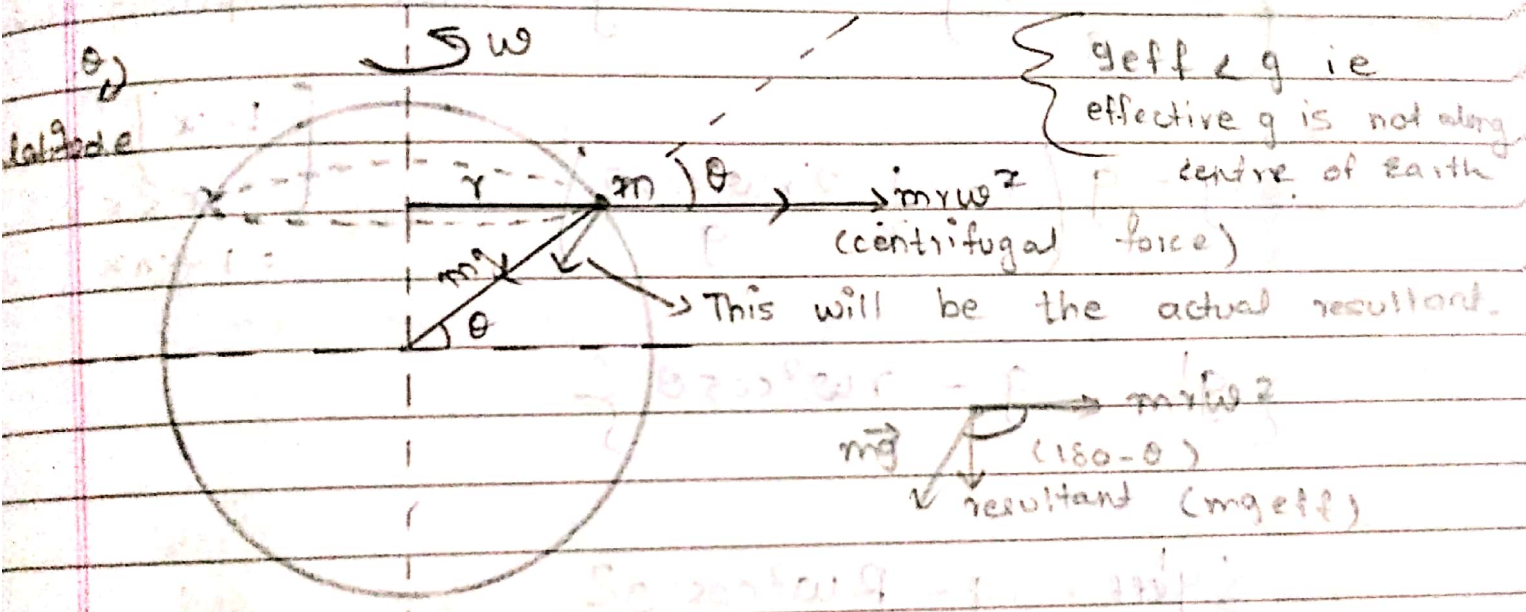 ω
θ
latitude
geff < g ie
effective g is not along
centre of Earth
r
m
θ
mrω²
(centrifugal force)
mg
θ
This will be the actual resultant.
mrω²
mg
(180-θ)
resultant (mgeff)